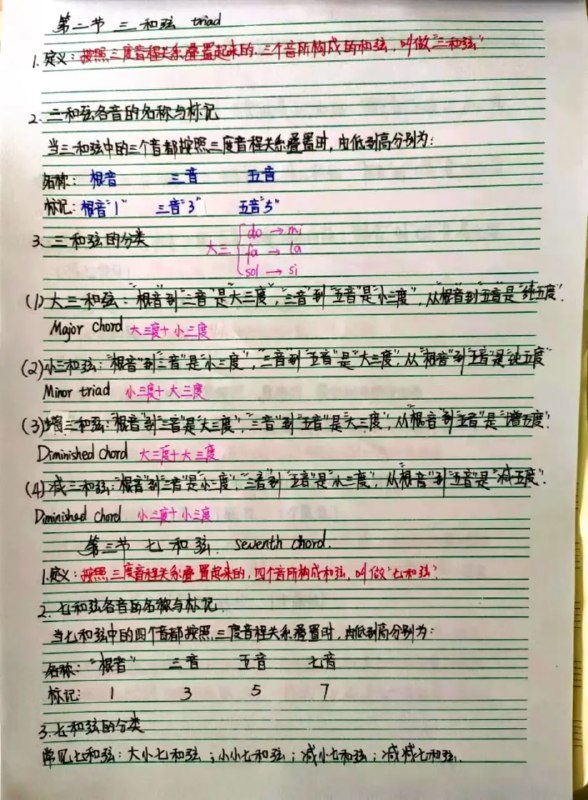 第二节 三和弦 triad
1. 定义: 按照三度音程关系叠置起来的.三个音所构成的和弦, 叫做"三和弦"
2. 三和弦各音的名称与标记
当三和弦中的三个音都按照三度音程关系叠置时, 由低到高分别为:
名称: 根音 三音 五音
标记: 根音"1" 三音"3" 五音"5"
3. 三和弦的分类
大三 { do → mi
fa → la
sol → si
(1) 大三和弦: "根音"到"三音"是"大三度", "三音"到"五音"是"小三度", 从"根音"到"五音"是"纯五度".
Major chord 大三度+小三度
(2) 小三和弦: "根音"到"三音"是"小三度", "三音"到"五音"是"大三度", 从"根音"到"五音"是"纯五度"
Minor triad 小三度+大三度
(3) 增三和弦: "根音"到"三音"是"大三度", "三音"到"五音"是"大三度", 从"根音"到"五音"是"增五度".
Diminished chord 大三度+大三度
(4) 减三和弦: "根音"到"三音"是"小三度", "三音"到"五音"是"小三度", 从"根音"到"五音"是"减五度".
Diminished chord 小三度+小三度
第三节 七和弦. seventh chord.
1. 定义: 按照三度音程关系叠置起来的, 四个音所构成和弦, 叫做"七和弦".
2. 七和弦各音的名称与标记.
当七和弦中的四个音都按照三度音程关系叠置时, 由低到高分别为:
名称: "根音" 三音 五音 七音
标记: 1 3 5 7
3. 七和弦的分类
常见七和弦: 大小七和弦; 小小七和弦; 减小七和弦; 减减七和弦.